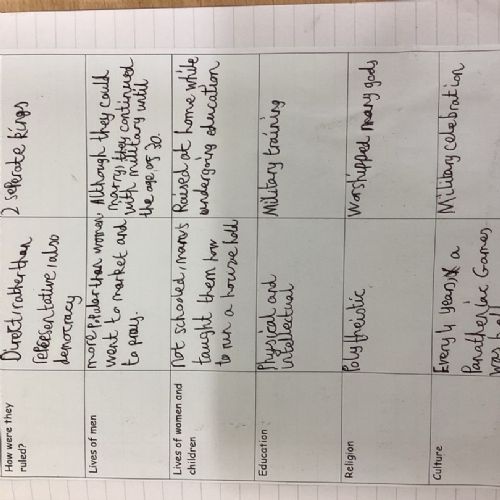 How were they
ruled?
Direct, rather than
representative, also
democracy
2 seperate kings
Lives of men
more popular than women
went to market and
to pray.
Although they could
marry, they continued
with military until
the age of 30.
Lives of women and
children
not schooled, mams
taught them how
to run a household
Raised at home while
undergoing education
Education
Physical and
intellectual
Military training
Religion
Polytheistic
Worshipped many gods
Culture
Every 4 years a
Panathenaic Games
was
Military celebration